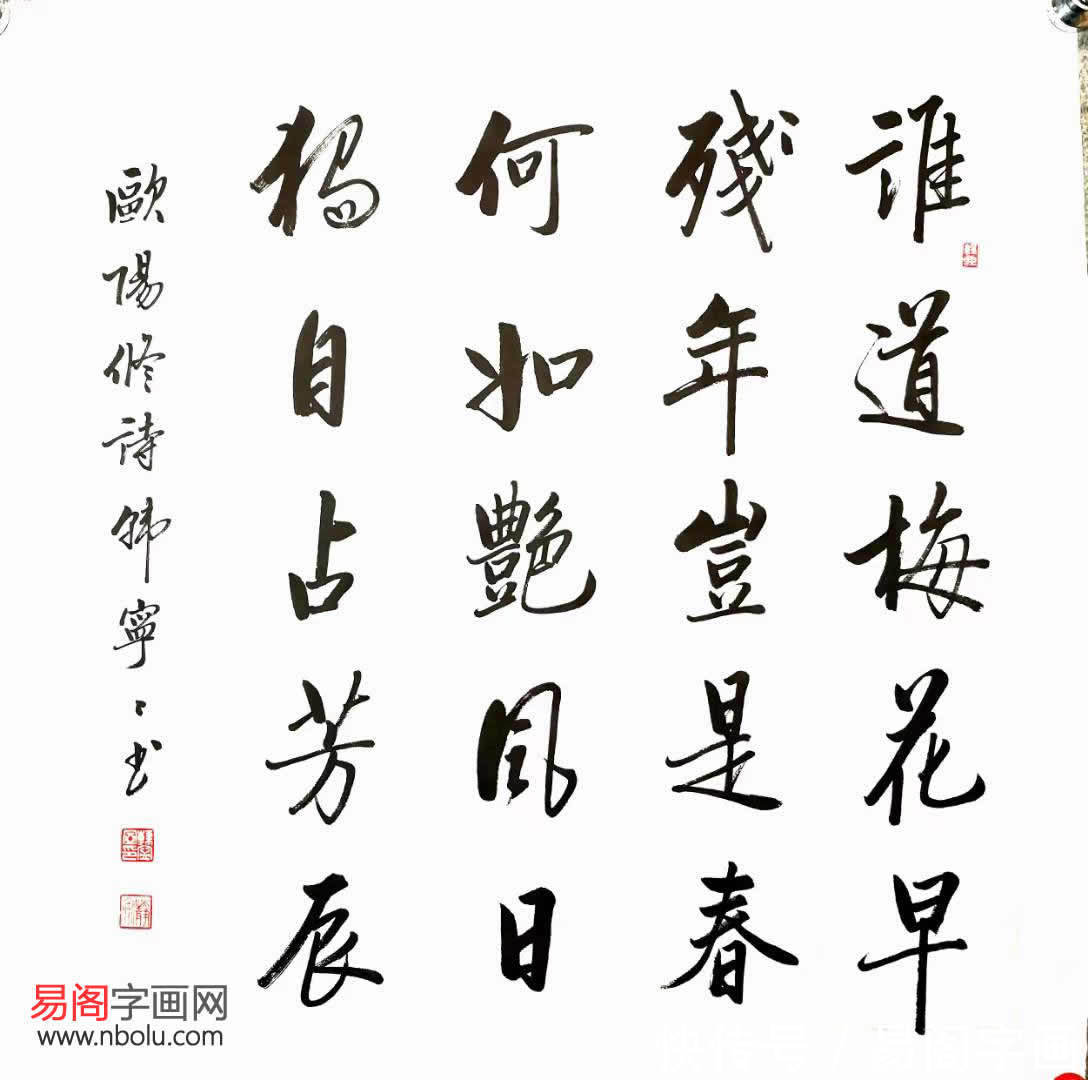 誰道梅花早
殘年豈是春
何如艷風日
獨自占芳辰
歐陽修詩韩寧寧书
易阁字画网
www.nbolu.com
快传号/易阁字画